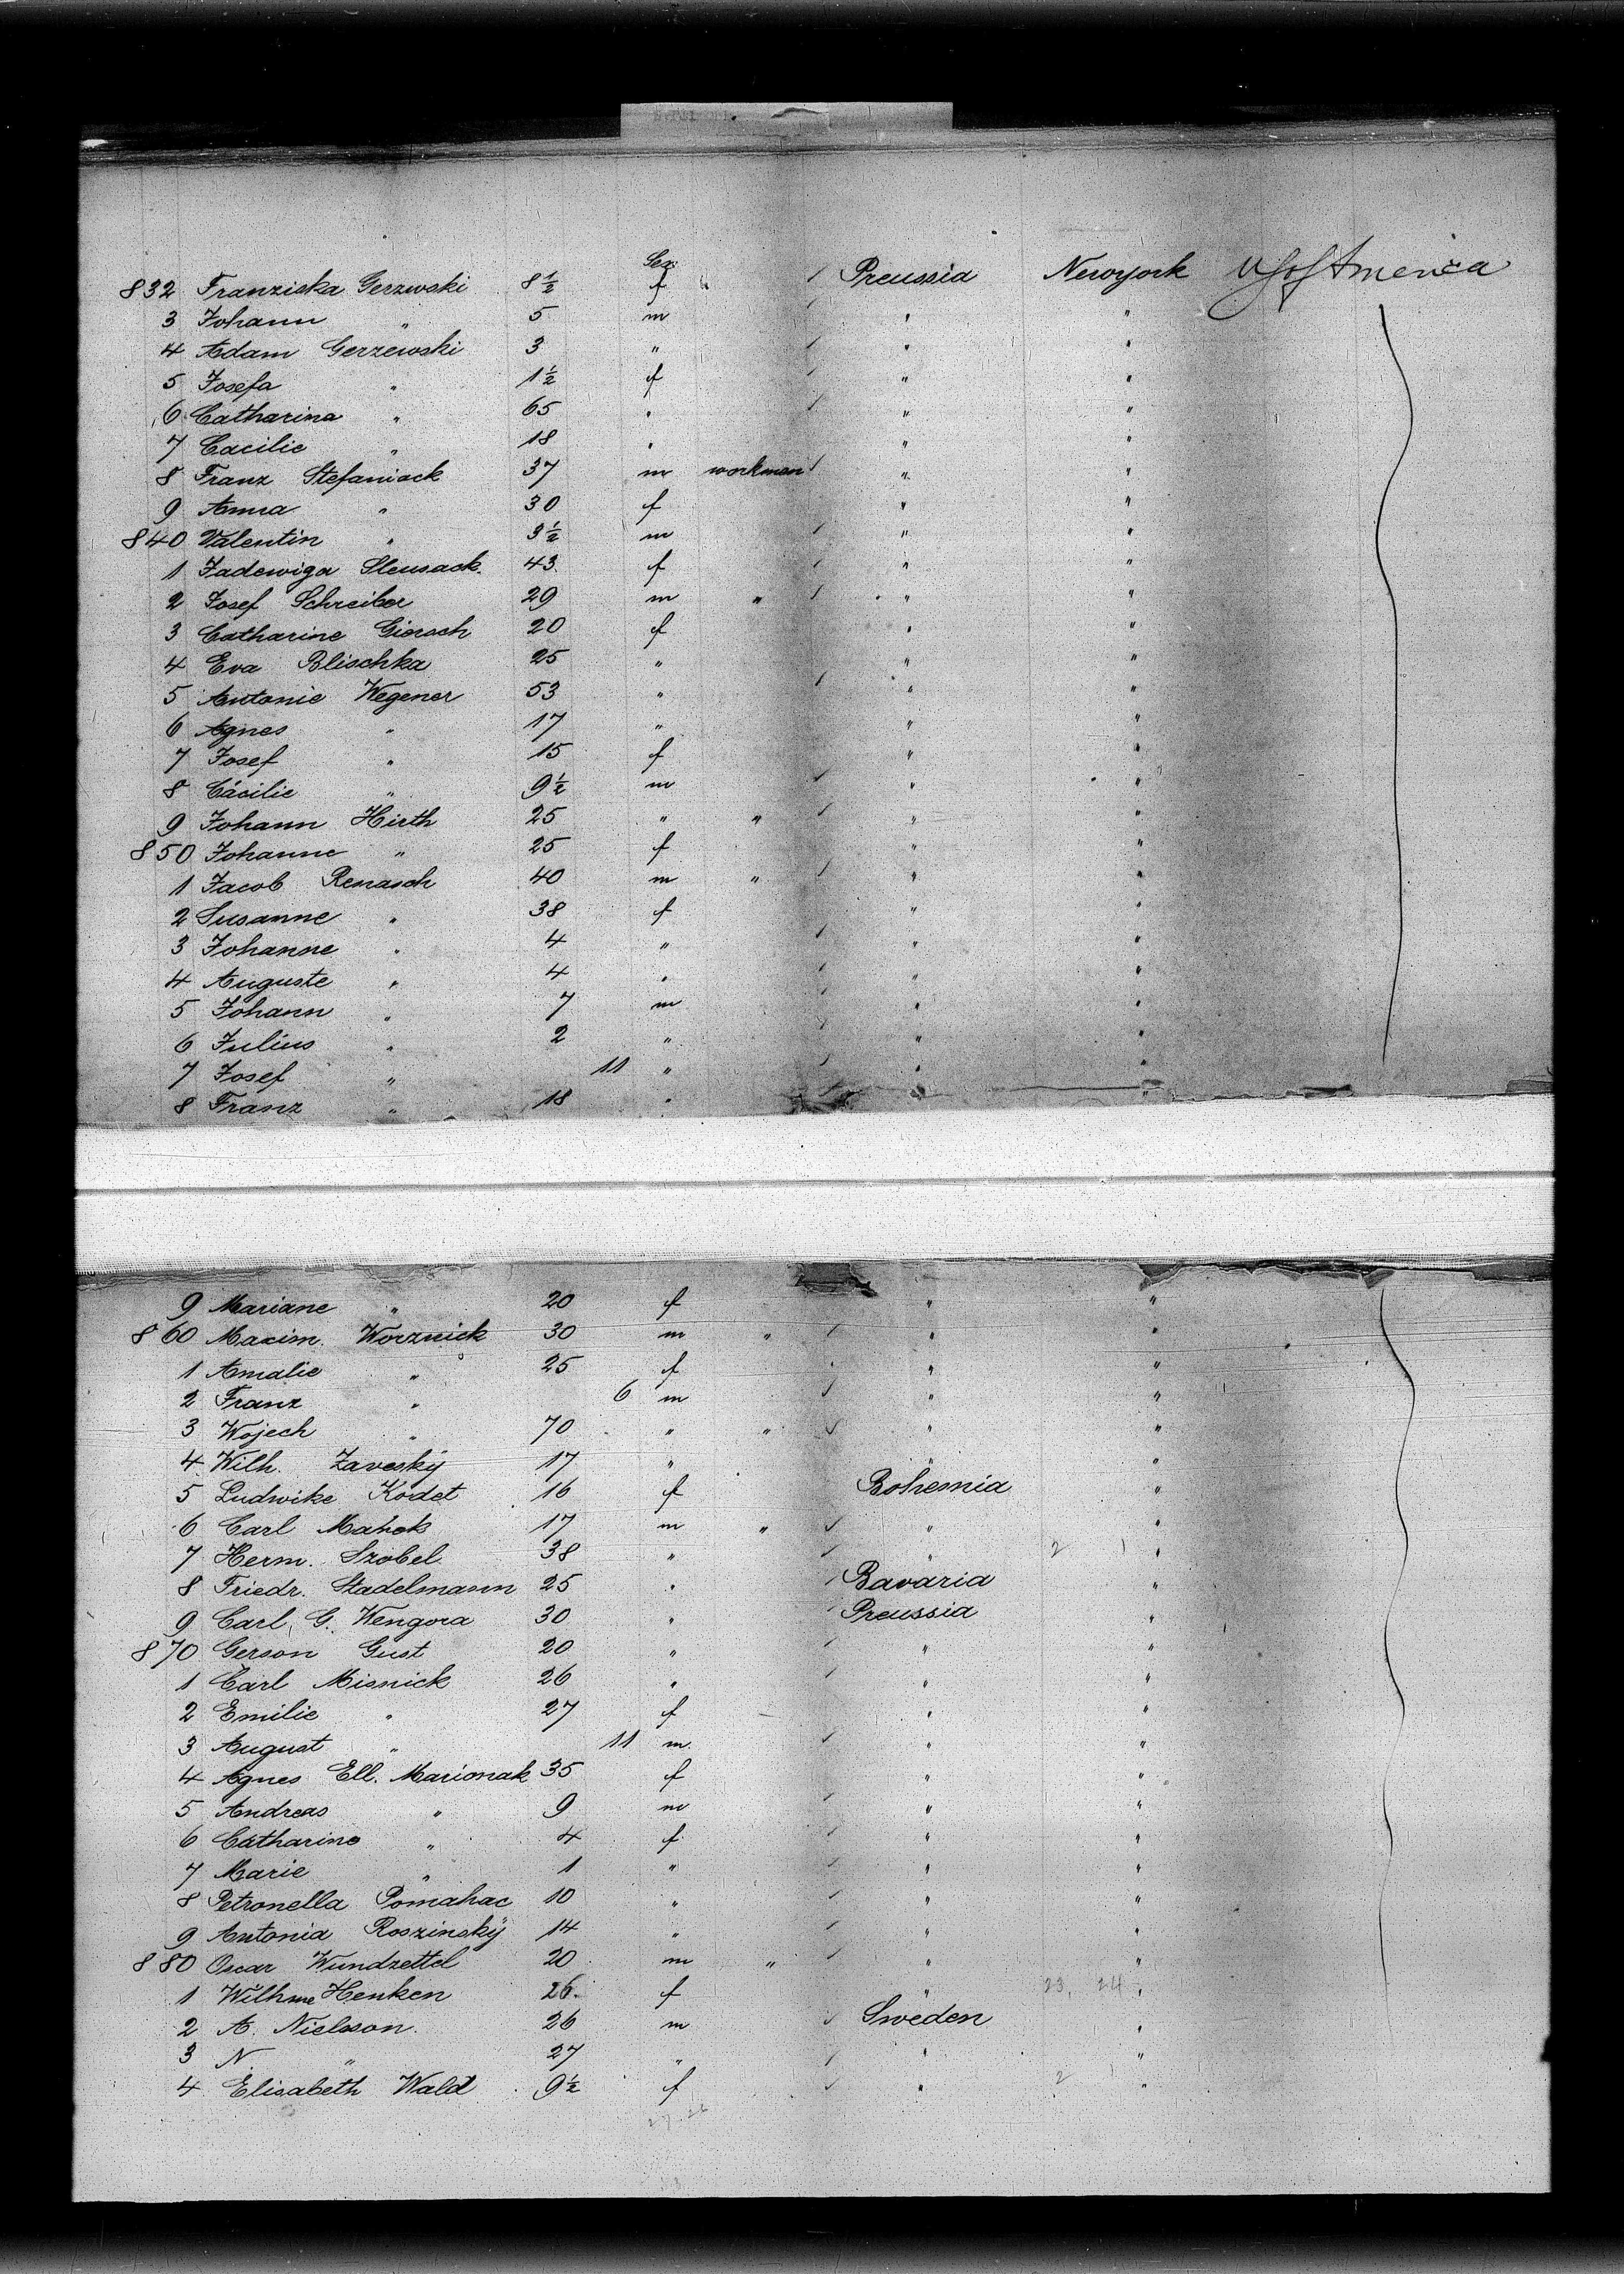 Sex:
832 Franziska Gerzwski 8½ f Preussia Newyork U S of America
3 Johann " 5 m " "
4 Adam Gerzewski 3 " " "
5 Josefa " 1½ f " "
6 Catharina " 65 " " "
7 Cacilie " 18 " " "
8 Franz Stefaniack 37 m workman " "
9 Anna " 30 f " "
840 Valentin " 3½ m " "
1 Jadewiga Sleusack. 43. f " "
2 Josef Schreiber 29 m " " "
3 Catharine Giersch 20 f " "
4 Eva Blischka 25 " " "
5 Antonie Wegener 53 " " "
6 Agnes " 17 " " "
7 Josef " 15 f " "
8 Cäcilie " 9½ m " "
9 Johann Hirth 25 " " " "
850 Johanne " 25 f " "
1 Jacob Renasch 40 m " " "
2 Susanne " 38 f " "
3 Johanne " 4 " " "
4 Auguste " 4 " " "
5 Johann " 7 m " "
6 Julius " 2 " " "
7 Josef " 11 " " "
8 Franz " 18 " " "
9 Mariane " 20 f " "
860 Maxim. Worznick 30 m " " "
1 Amalie " 25 f " "
2 Franz " 6 m " "
3 Wojech " 70 " " " "
4 Wilh. Zavesky 17 " " "
5 Ludwike Kodet 16 f Bohemia "
6 Carl Mahok 17 m " " "
7 Herm. Szobel 38 " " 2 1 "
8 Friedr. Stadelmann 25 " Bavaria "
9 Carl G. Wengora 30 " Preussia "
870 Gerson Gust 20 " " "
1 Carl Misnick 26 " " "
2 Emilie " 27 f " "
3 August " 11 m. " "
4 Agnes Ell. Marionak 35 f " "
5 Andreas " 9 m " "
6 Catharine " 4 f " "
7 Marie " 1 " " "
8 Petronella Pomahac 10 " " "
9 Antonia Roszinsky 14 " " "
880 Oscar Wundzettel 20 m " " "
1 Wilhme Henken 26. f " 23, 24 "
2 A. Nielsson. 26 m Sweden "
3 N. " 27 " " "
4 Elisabeth Wald 9½ f " 2 "
27 26